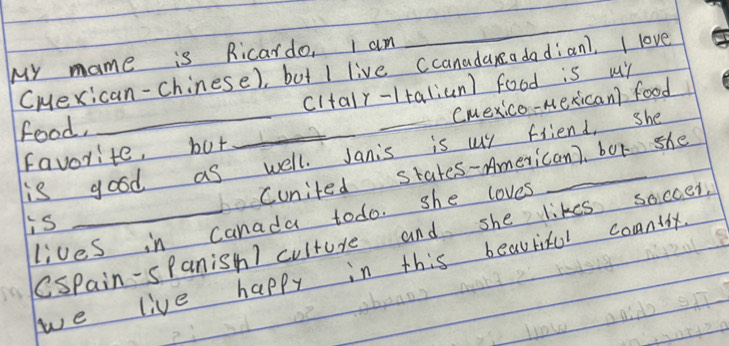 My mame is Ricardo, I am ________
(Mexican-Chinese), but I live (canada
food, ________ (Italy-Italian) food is my
favorite, but ________ (Mexico-Mexican) food
is good as well. Janis is my friend, she
is ________ (United States-American), but she
lives in Canada todo. she loves ________
(Spain-Spanish) culture and she likes soccer,
we live happy in this beautiful country.